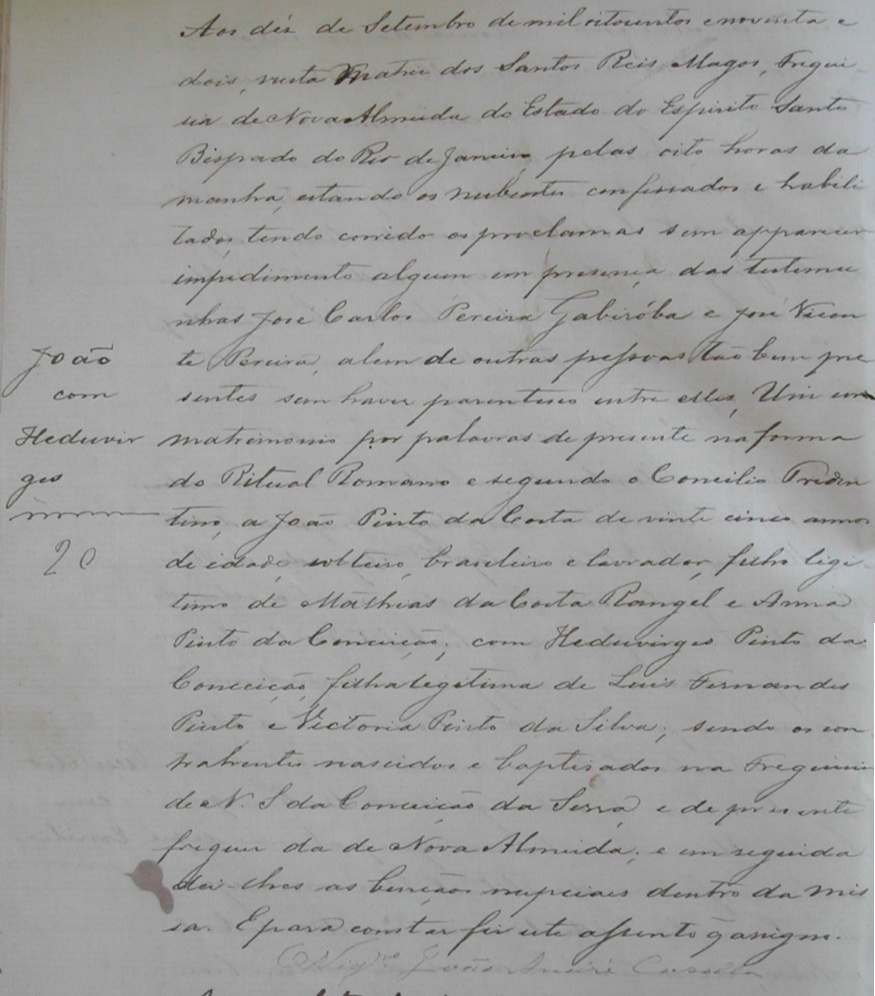 Aos déz de Setembro de mil oitocentos e noventa e
dois, nesta Matriz dos Santos Reis Magos, Fregui
sia de Nova Almeida do Estado do Espirito Santo
Bispado do Rio de Janeiro, pelas oito horas da
manhã, estando os nubentes confessados e habili
tados, tendo corrido os proclamas sem apparecer
impedimento algum em presença das testemu
nhas José Carlos Pereira Gabiróba e José Vicen
te Pereira, alem de outras pessoas tão bem pre
sentes sem haver parentesco entre elles, Uni em
matrimonio por palavras de presente na forma
do Ritual Romano e segundo o Concilio Triden
tino, a João Pinto da Costa de vinte cinco annos
de idade, solteiro, brasileiro e lavrador, filho legi
timo de Mathias da Costa Rangel e Anna
Pinto da Conceição; com Heduvirges Pinto da
Conceição, filha legitima de Luis Fernandes
Pinto e Victoria Pinto da Silva; sendo os con
trahentes nascidos e baptisados na Freguisia
de N. S da Conceição da Serra, e de presente
freguez da de Nova Almeida; e em seguida
dei-lhes as bençãos nupciaes dentro da mis
sa. E para constar fiz este assento q̃ assigno.
Vigrº João André Casella
João
com
Heduvir
ges
20